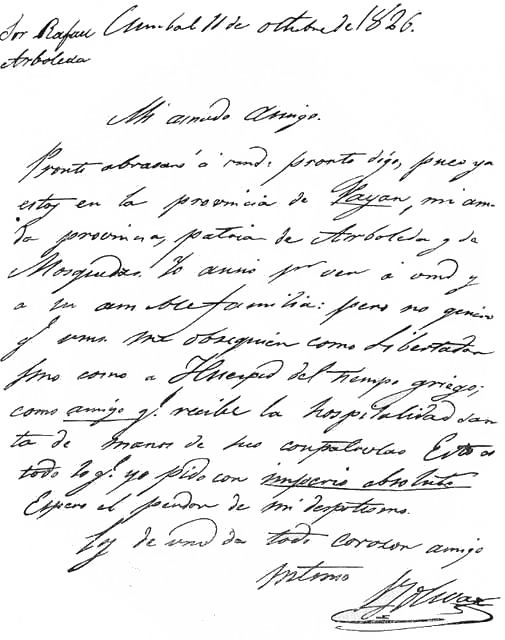 Sor Rafael Cumbal 11 de octubre de 1826.
Arboleda
Mi amado amigo.
Pronto abrasaré á vmd: pronto digo, pues ya
estoy en la provincia de Payan, mi ama-
da provincia, patria de Arboleda y de
Mosquedas. Yo ansio pr ver á vmd y
a su amable familia: pero no quiero
qe vms. me obsequien como Libertador
sino como a Huesped del tiempo griego;
como amigo qe recibe la hospitalidad san-
ta de manos de sus compatriotas Esto es
todo lo qe yo pido con imperio absoluto
Espero el perdon de mi despotismo.
Soy de vmd de todo corason amigo
intimo
Bolivar